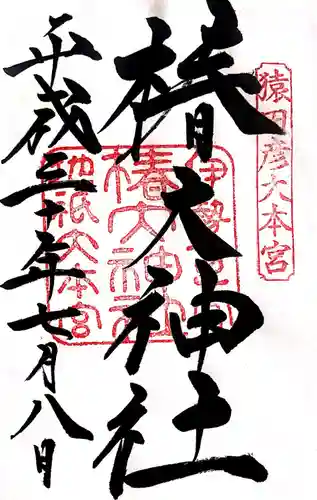 猿田彦大本宮
椿大神社
伊勢一之宮
椿大神社
地祇大本宮
平成三十年七月八日